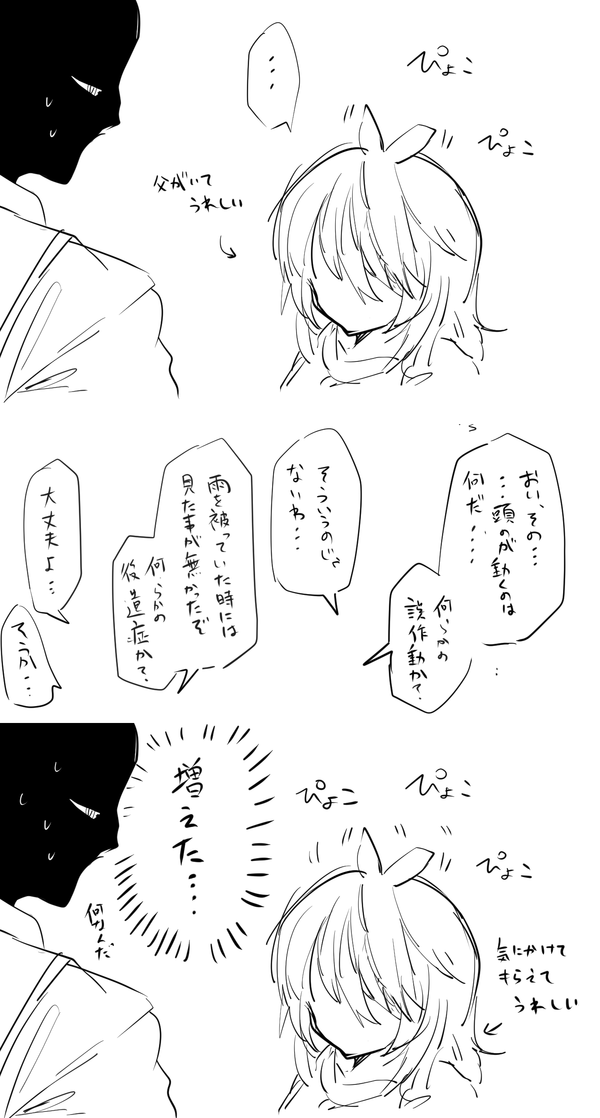 ぴょこ
ぴょこ
・・・
父がいて
うれしい
おい、その・・・
・・・頭のが動くのは
何だ・・・・
何らかの
誤作動か?
そういうのじゃ
ないわ・・・
雨を被っていた時には
見た事が無かったぞ
何らかの
後遺症か?
大丈夫よ・・・
そうか・・・
ぴょこ
ぴょこ
ぴょこ
増えた・・・・
何なんだ
気にかけて
もらえて
うれしい